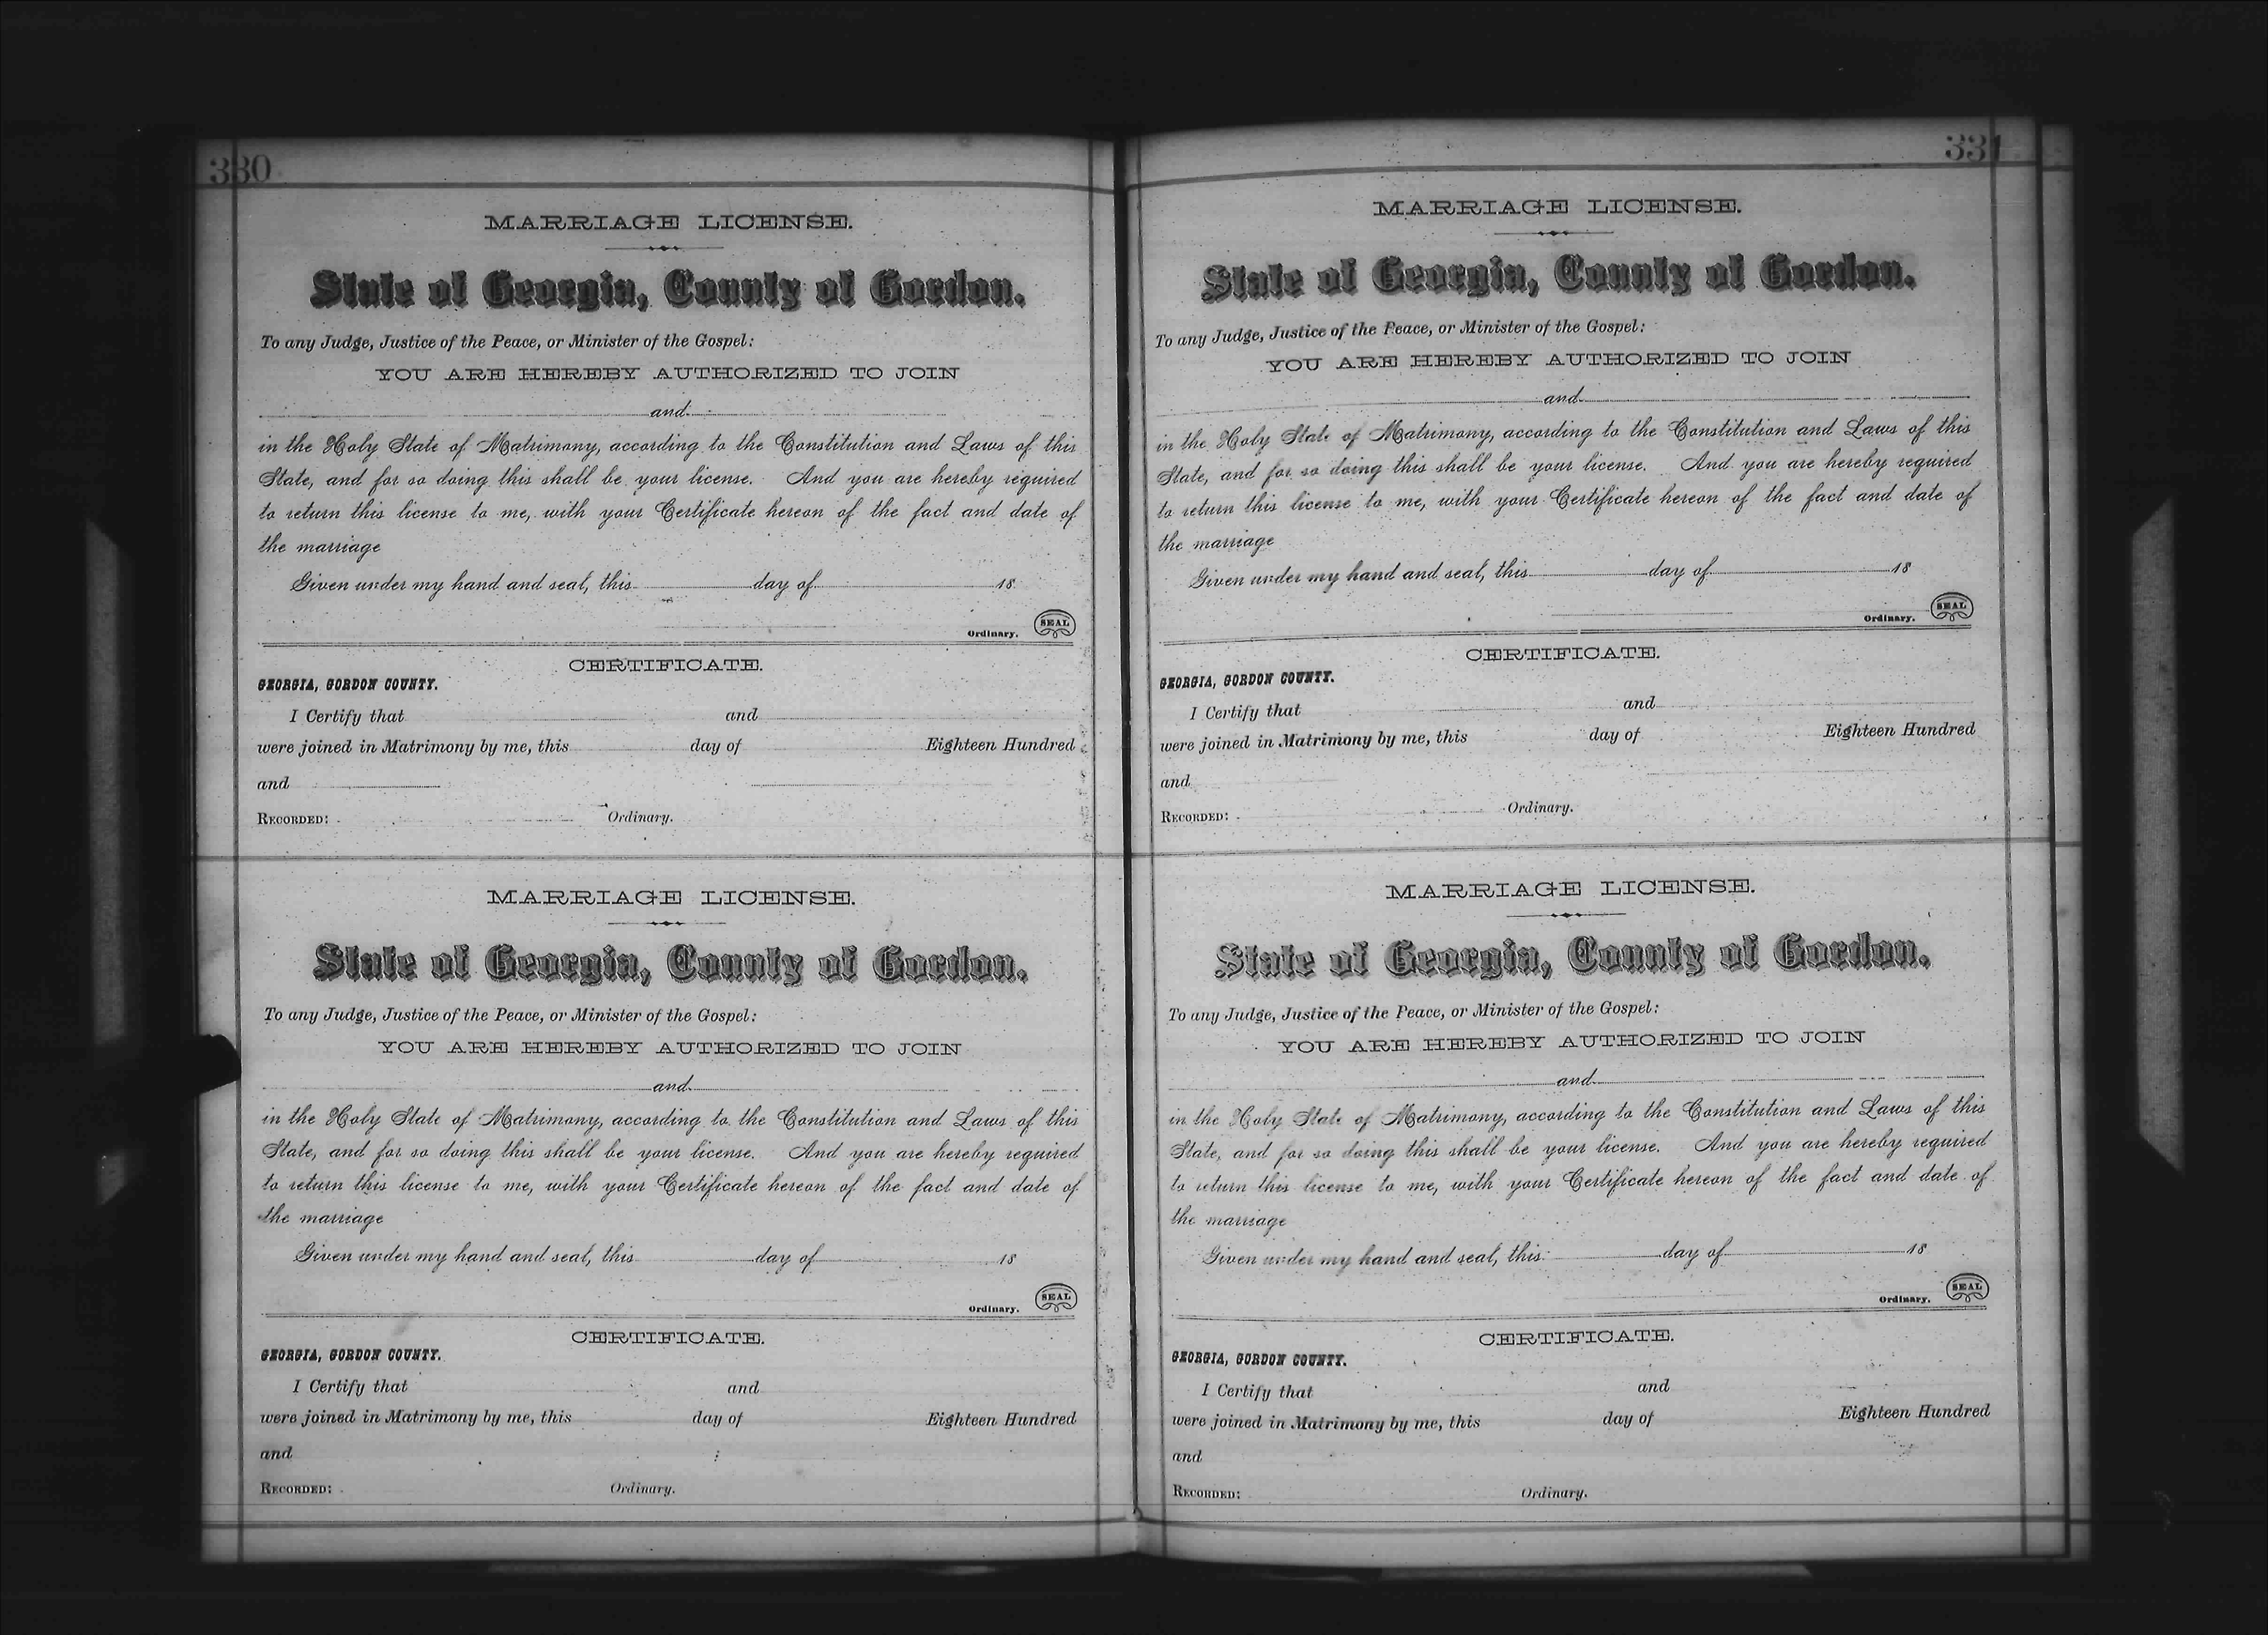 330
MARRIAGE LICENSE.
State of Georgia, County of Gordon.
To any Judge, Justice of the Peace, or Minister of the Gospel:
YOU ARE HEREBY AUTHORIZED TO JOIN
and
in the Holy State of Matrimony, according to the Constitution and Laws of this
State, and for so doing this shall be your license. And you are hereby required
to return this license to me, with your Certificate hereon of the fact and date of
the marriage
Given under my hand and seal, this day of 18
Ordinary. SEAL
CERTIFICATE.
GEORGIA, GORDON COUNTY.
I Certify that and
were joined in Matrimony by me, this day of Eighteen Hundred
and
RECORDED: Ordinary.
MARRIAGE LICENSE.
State of Georgia, County of Gordon.
To any Judge, Justice of the Peace, or Minister of the Gospel:
YOU ARE HEREBY AUTHORIZED TO JOIN
and
in the Holy State of Matrimony, according to the Constitution and Laws of this
State, and for so doing this shall be your license. And you are hereby required
to return this license to me, with your Certificate hereon of the fact and date of
the marriage
Given under my hand and seal, this day of 18
Ordinary. SEAL
CERTIFICATE.
GEORGIA, GORDON COUNTY.
I Certify that and
were joined in Matrimony by me, this day of Eighteen Hundred
and
RECORDED: Ordinary.
331
MARRIAGE LICENSE.
State of Georgia, County of Gordon.
To any Judge, Justice of the Peace, or Minister of the Gospel:
YOU ARE HEREBY AUTHORIZED TO JOIN
and
in the Holy State of Matrimony, according to the Constitution and Laws of this
State, and for so doing this shall be your license. And you are hereby required
to return this license to me, with your Certificate hereon of the fact and date of
the marriage
Given under my hand and seal, this day of 18
Ordinary. SEAL
CERTIFICATE.
GEORGIA, GORDON COUNTY.
I Certify that and
were joined in Matrimony by me, this day of Eighteen Hundred
and
RECORDED: Ordinary.
MARRIAGE LICENSE.
State of Georgia, County of Gordon.
To any Judge, Justice of the Peace, or Minister of the Gospel:
YOU ARE HEREBY AUTHORIZED TO JOIN
and
in the Holy State of Matrimony, according to the Constitution and Laws of this
State, and for so doing this shall be your license. And you are hereby required
to return this license to me, with your Certificate hereon of the fact and date of
the marriage
Given under my hand and seal, this day of 18
Ordinary. SEAL
CERTIFICATE.
GEORGIA, GORDON COUNTY.
I Certify that and
were joined in Matrimony by me, this day of Eighteen Hundred
and
RECORDED: Ordinary.